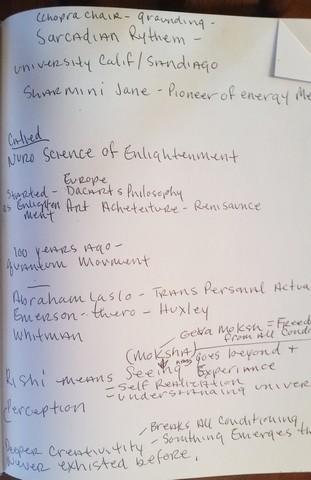 Chopra chair - grounding -
Sarcadian Rythem -
University Calif / SandiAgo
Sharmini Jane - Pioneer of energy Me
Called
Nuro Science of Enlightenment
Europe
Started - Dacarts Philosophy
as Enlighten
ment Art Acheteiture - Renisaunce
100 years Ago -
Quantum Movment
Abraham Laslo - Trans Personal Actua
Emerson - thero - Huxley
Whitman
Geeta Moksh = Freed
from All Condi
(Moksha) goes beyond +
Rishi - means Seeing Experiance
- Self Realization
- understanding univer
Perception
- Breaks All Conditioning
Deeper Creativitity - Somthing Emerges th
never exhisted before.